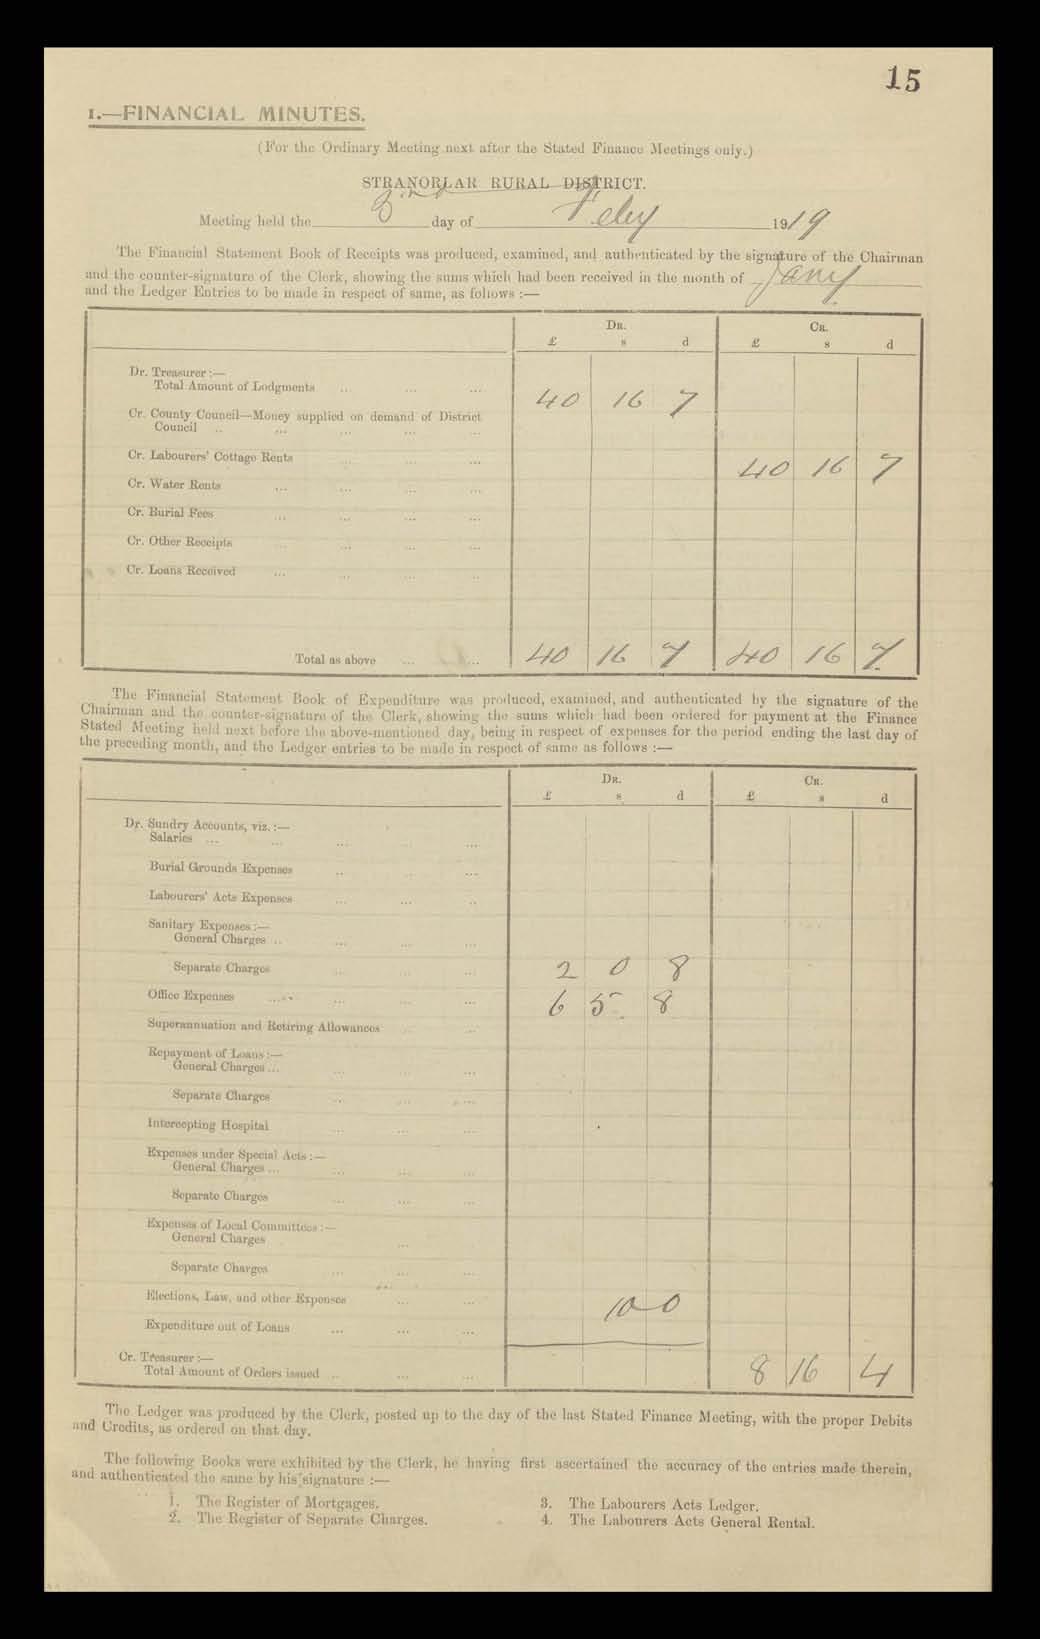 15
1.—FINANCIAL MINUTES.
(For the Ordinary Meeting next after the Stated Finance Meetings only.)
STRANORLAR RURAL DISTRICT.
Meeting held the day of Feby 1919
The Financial Statement Book of Receipts was produced, examined, and authenticated by the signature of the Chairman
and the counter-signature of the Clerk, showing the sums which had been received in the month of Jany
and the Ledger Entries to be made in respect of same, as follows :—
DR. CR.
£ s d £ s d
Dr. Treasurer :—
Total Amount of Lodgments ... ... ... 40 16 7
Cr. County Council—Money supplied on demand of District
Council ... ... ... ... ...
Cr. Labourers' Cottage Rents ... ... ... 40 16 7
Cr. Water Rents ... ... ... ...
Cr. Burial Fees ... ... ... ...
Cr. Other Receipts ... ... ... ...
Cr. Loans Received ... ... ... ...
Total as above ... ... 40 16 7 40 16 7
The Financial Statement Book of Expenditure was produced, examined, and authenticated by the signature of the
Chairman and the counter-signature of the Clerk, showing the sums which had been ordered for payment at the Finance
Stated Meeting held next before the above-mentioned day, being in respect of expenses for the period ending the last day of
the preceding month, and the Ledger entries to be made in respect of same as follows :—
DR. CR.
£ s d £ s d
Dr. Sundry Accounts, viz. :—
Salaries ... ... ... ... ...
Burial Grounds Expenses ... ... ...
Labourers' Acts Expenses ... ... ...
Sanitary Expenses :—
General Charges ... ... ... ...
Separate Charges ... ... ... 2 0 8
Office Expenses ... ... ... ... 6 5 8
Superannuation and Retiring Allowances ... ...
Repayment of Loans :—
General Charges ... ... ... ...
Separate Charges ... ... ...
Intercepting Hospital ... ... ...
Expenses under Special Acts :—
General Charges ... ... ... ...
Separate Charges ... ... ...
Expenses of Local Committees :—
General Charges ...
Separate Charges ... ... ...
Elections, Law, and other Expenses ... ... 10 0
Expenditure out of Loans ... ... ...
Cr. Treasurer :—
Total Amount of Orders issued ... ... ... 8 16 4
The Ledger was produced by the Clerk, posted up to the day of the last Stated Finance Meeting, with the proper Debits
and Credits, as ordered on that day.
The following Books were exhibited by the Clerk, he having first ascertained the accuracy of the entries made therein,
and authenticated the same by his signature :—
1. The Register of Mortgages.
2. The Register of Separate Charges.
3. The Labourers Acts Ledger.
4. The Labourers Acts General Rental.